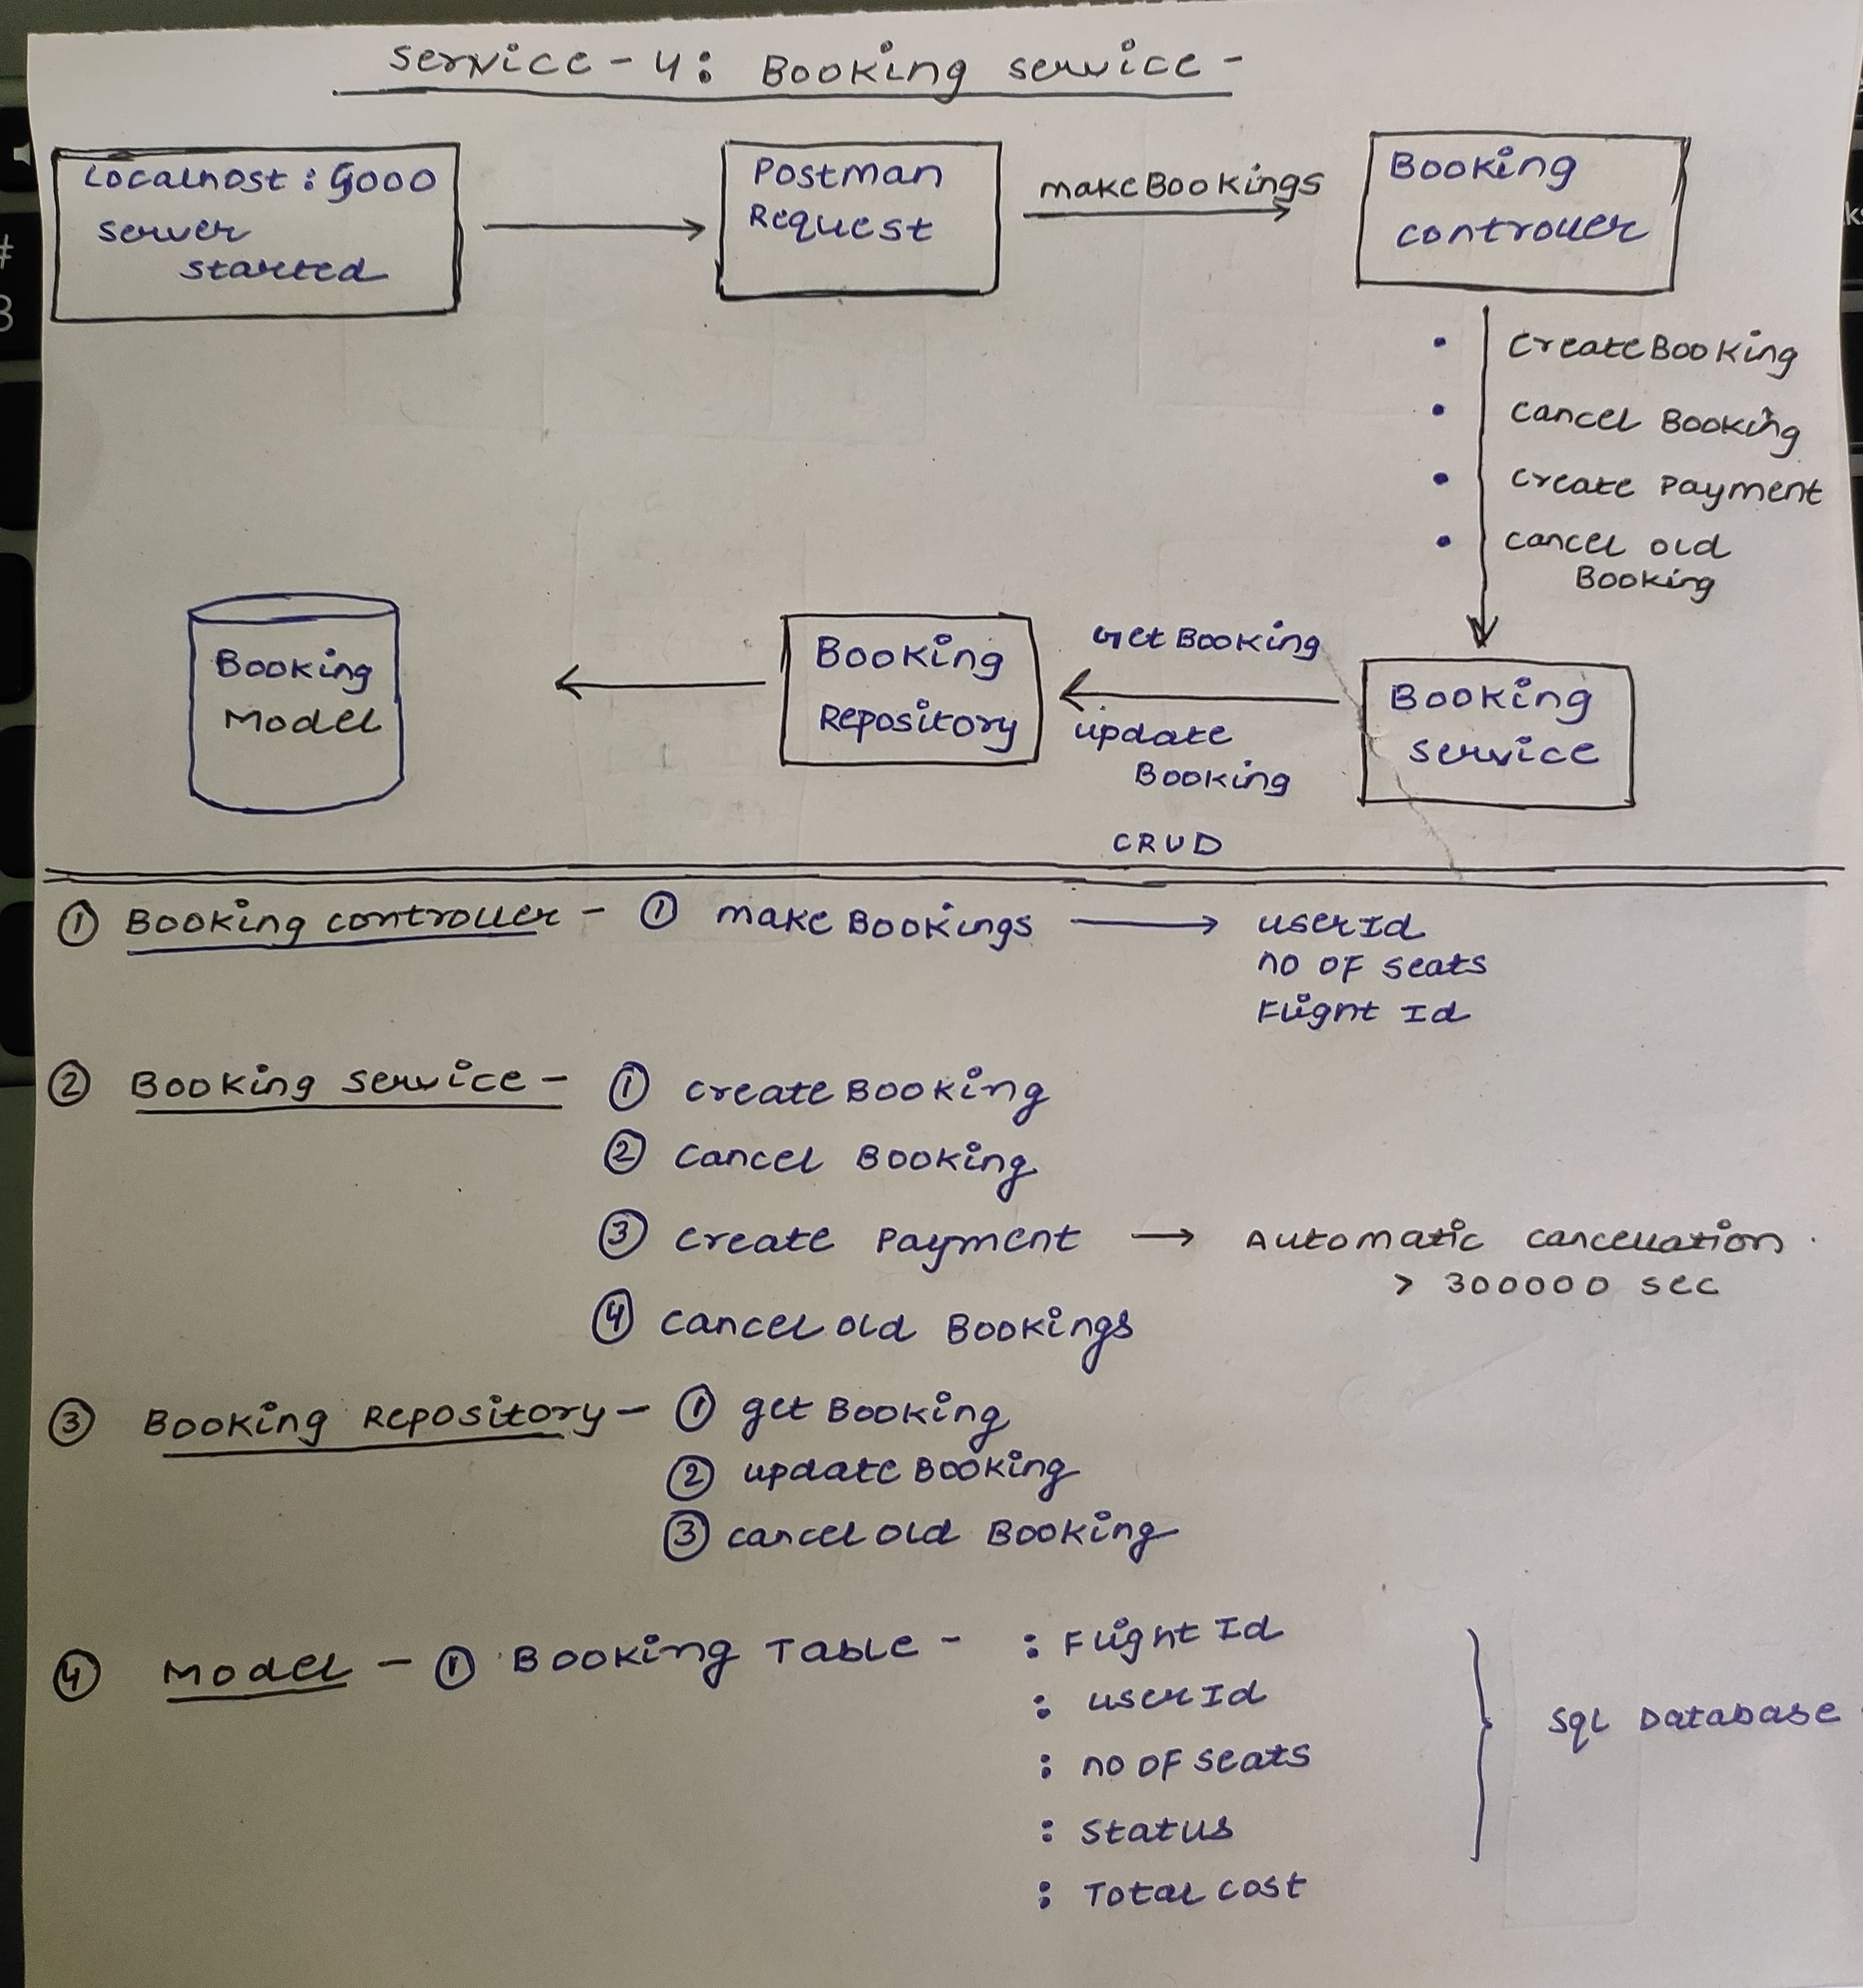 Service - 4: Booking service -
Localhost: 5000
server
started
Postman
Request
makeBookings
Booking
controller
CreateBooking
Cancel Booking
Create Payment
Cancel old
Booking
Booking
Model
Booking
Repository
Get Booking
update
Booking
Booking
service
CRUD
① Booking controller - ① make Bookings → userId
no of seats
Flight Id
② Booking Service - ① create Booking
② Cancel Booking
③ Create Payment → Automatic cancellation
> 300000 sec
④ Cancel old Bookings
③ Booking Repository - ① get Booking
② update Booking
③ cancel old Booking
④ Model - ① Booking Table - : Flight Id
: userId
: no of seats
: Status
: Total cost
Sql Database